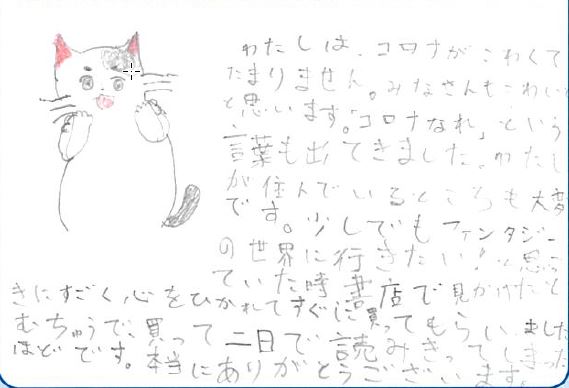 わたしは、コロナがこわくて
たまりません。みなさんもこわい
と思います。「コロナなれ」という
言葉も出てきました。わたし
が住んでいるところも大変
です。少しでもファンタジー
の世界に行きたい!と思っ
ていた時書店で見かけたと
きにすごく心をひかれてすぐに買ってもらいました
むちゅうで、買って二日で読みきってしまった
ほどです。本当にありがとうございます。